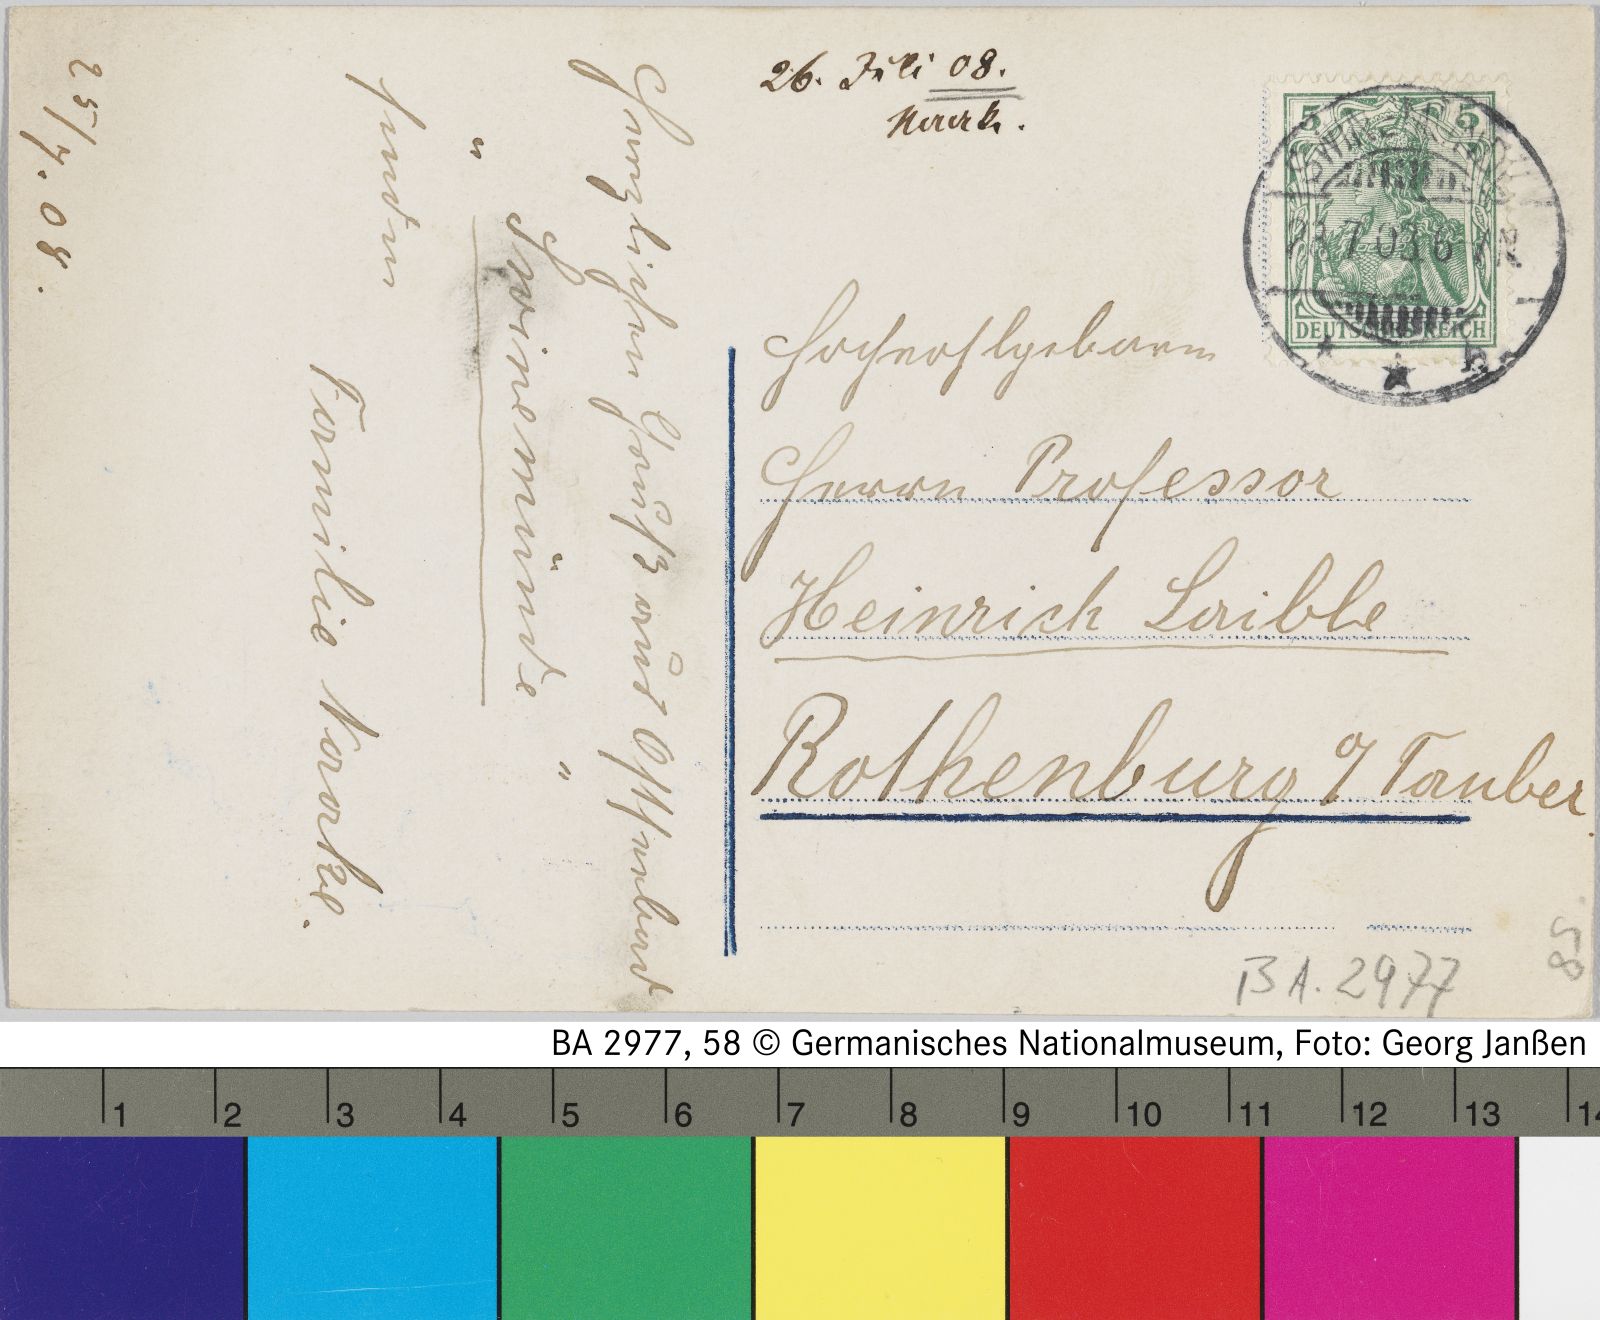 25/7.08.
Herzlichen Gruß aus Ostseebad
"Swinemünde"
senden
Familie Noack.
26. Juli 08.
Noack.
5 5
DEUTSCHES REICH
Hochwohlgeboren
Herrn Professor
Heinrich Laible
Rothenburg o/Tauber.
BA. 2977
58
BA 2977, 58 © Germanisches Nationalmuseum, Foto: Georg Janßen
1 2 3 4 5 6 7 8 9 10 11 12 13 14